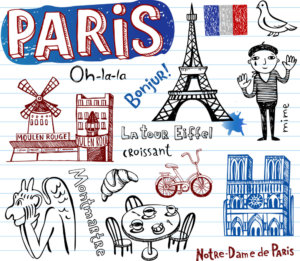 PARIS
Oh-la-la
Bonjur!
MOULEN ROUGE
La tour Eiffel
croissant
mime
Montmartre
Notre-Dame de Paris